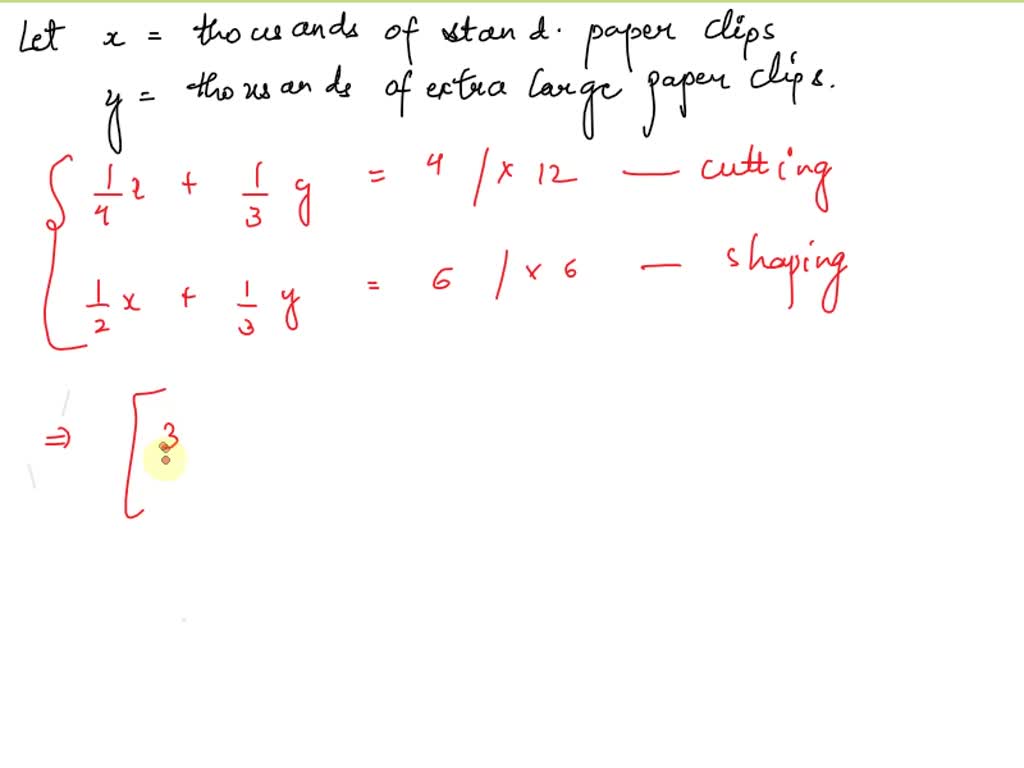 Let x = thousands of stand. paper clips
y = thousands of extra large paper clips.
1/4 x + 1/3 y = 4 / × 12 — cutting
1/2 x + 1/3 y = 6 / × 6 — shaping
⇒ [ 3